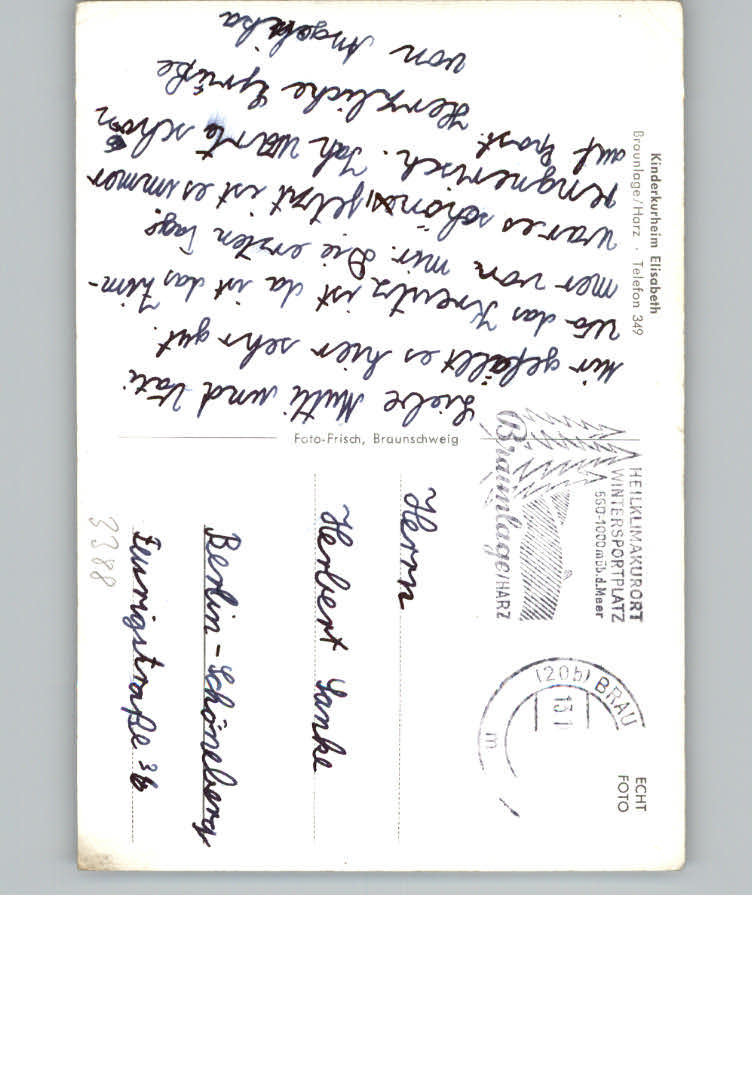 Kinderkurheim Elisabeth
Braunlage/Harz · Telefon 349
Liebe Mutti und Vati
Mir gefällt es hier sehr gut.
Wo das Kreutz ist da ist das Zim-
mer von mir. Die ersten Tage
war es schön, jetzt ist es immer
rengnerisch. Ich warte schon
auf Post.
Herzliche Grüße
von Angelika
Foto-Frisch, Braunschweig
HEILKLIMAKURORT
WINTERSPORTPLATZ
560-1000 m üb.d. Meer
Braunlage/HARZ
(20b) BRAU
13.1
m
ECHT
FOTO
Herrn
Herbert Lanke
Berlin-Schöneberg
Feurigstraße 36
3388